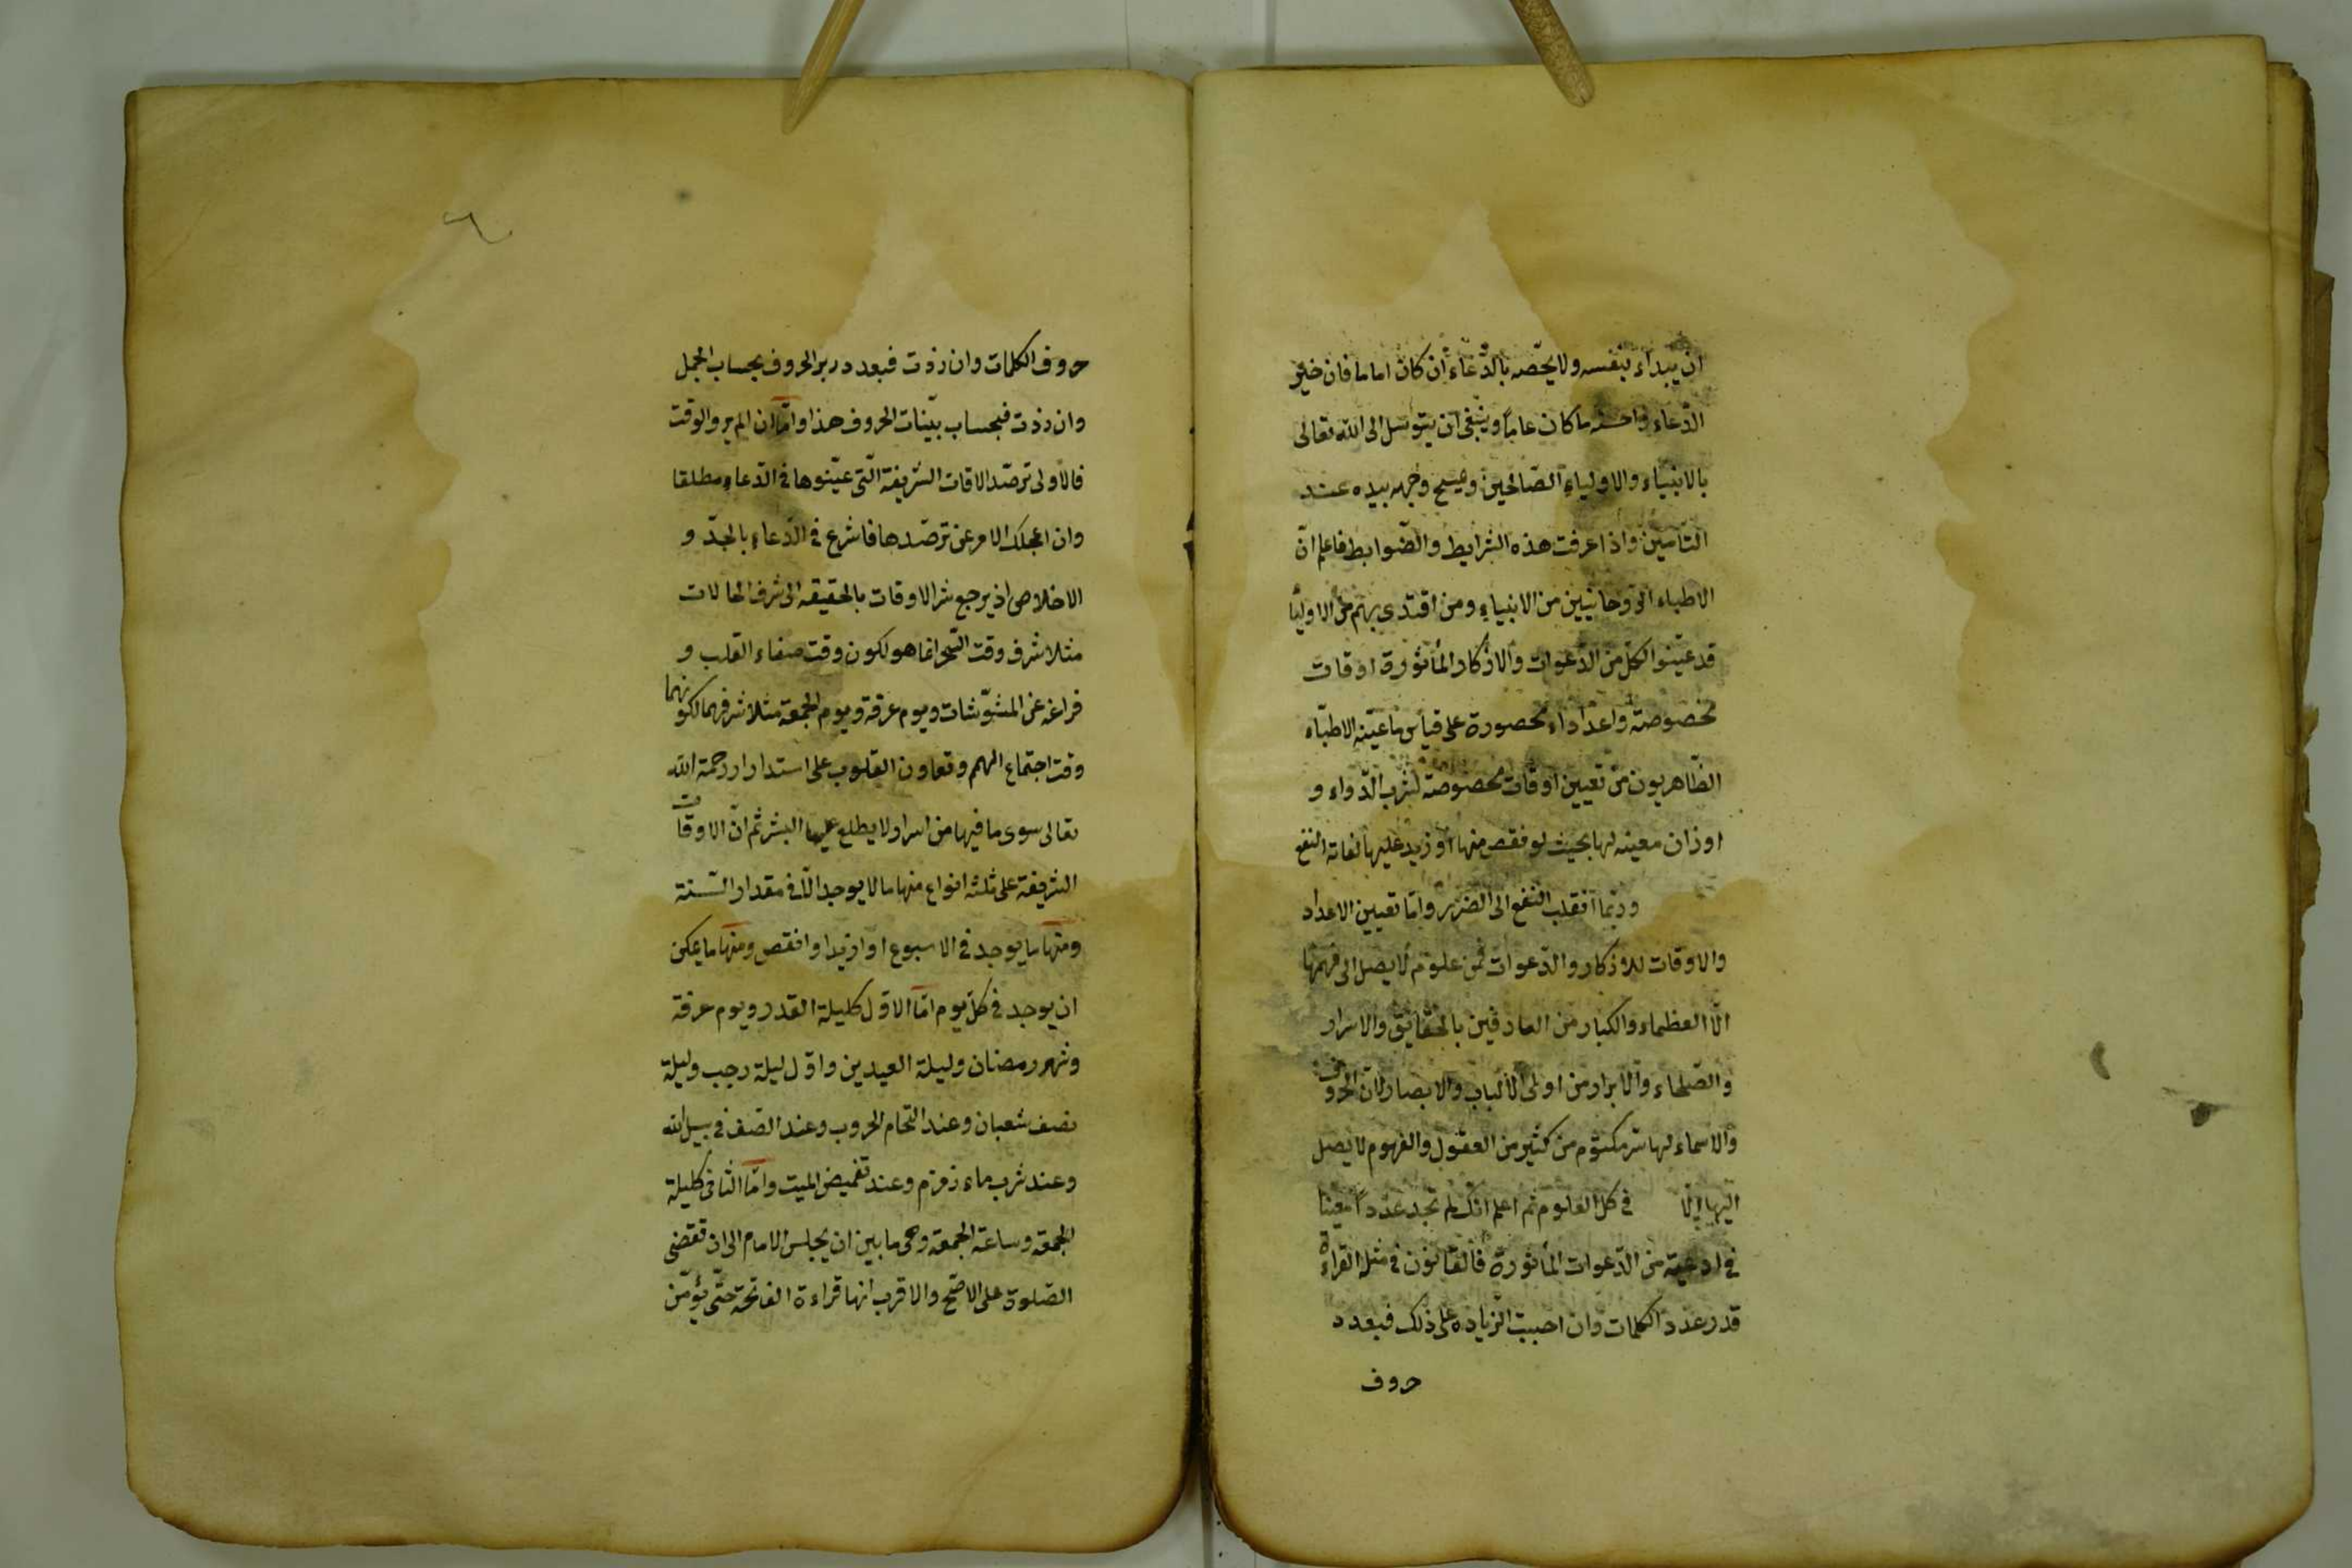 ان يبداء بنفسه ولا يخصه بالدّعاء ان كان اماما فان خير
الدّعاء واحسنه ما كان عامّا وينبغى ان يتوسّل الى الله تعالى
بالانبياء والاولياء الصّالحين ويمسح وجهه بيده عند
التأمين واذا عرفت هذه الشرايط والضّوابط فاعلم انّ
الاطباء الرّوحانيّين من الانبياء ومن اقتدى بهم من الاوليا
قد عيّنوا لكلّ من الدّعوات والاذكار المأثورة اوقات
مخصوصة واعدادا محصورة على قياس ما عيّنه الاطبّاء
الظّاهريون من تعيين اوقات مخصوصة لشرب الدّواء و
اوزان معينه لها بحيث لو نقص منها او زيد عليها لفاته النفع
وربّما انقلب النفع الى الضرر وامّا تعيين الاعداد
والاوقات للاذكار والدّعوات فمن علوم لا يصل الى فهمها
الّا العظماء والكبار من العارفين بالحقايق والاسرار
والصّلحاء والابرار من اولى الألباب والابصار لانّ الحروف
والاسماء لها سر مكتوم من كثير من العقول والفهوم لا يصل
اليها الّا في كل العلوم ثم اعلم انّك لم تجد عددا معينا
في ادعية من الدّعوات المأثورة فالقانون في مثله القراءة
قدر عدد الكلمات وان احببت الزيادة على ذلك فبعدد
حروف
حروف الكلمات وان زدت فبعدد زبر الحروف بحساب الجمل
وان زدت فبحساب بيّنات الحروف هذا وامّا ان لم ير والوقت
فالاولى ترصّد الاقات الشريفة الّتى عيّنوها في الدّعاء مطلقا
وان اعجلك الامر عن ترصّدها فاشرع في الدّعاء بالجدّ و
الاخلاص اذ يرجع شر الاوقات بالحقيقه الى شرف الحالات
مثلا شرف وقت السّحر انما هو لكون وقت صفاء القلب و
فراغه عن المشوّشات ويوم عرفة ويوم الجمعة مثلا شرفهما لكونهما
وقت اجتماع الهمم وتعاون القلوب على استدرار رحمة الله
تعالى سوى ما فيها من اسرار لا يطلع عليها البشر ثم انّ الاوقات
الشريفة على ثلثه انواع منها ما لا يوجد الّا في مقدار السّنة
ومنها ما يوجد في الاسبوع او ازيد او انقص ومنها ما يمكن
ان يوجد في كلّ يوم امّا الاوّل كليلة القدر ويوم عرفة
وشهر رمضان وليلة العيدين واوّل ليلة رجب وليلة
نصف شعبان وعند التحام الحروب وعند الصّف في سبيل الله
وعند شرب ماء زمزم وعند تغميض الميت وامّا الثانى كليلة
الجمعة وساعة الجمعة وهى ما بين ان يجلس الامام الى ان تقضى
الصّلوة على الاصّح والاقرب انها قراءة الفاتحة حتّى يؤمّن